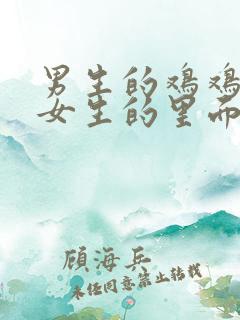 男生的鸡鸡
女生的里面
顾海兵
未经同意禁止转载